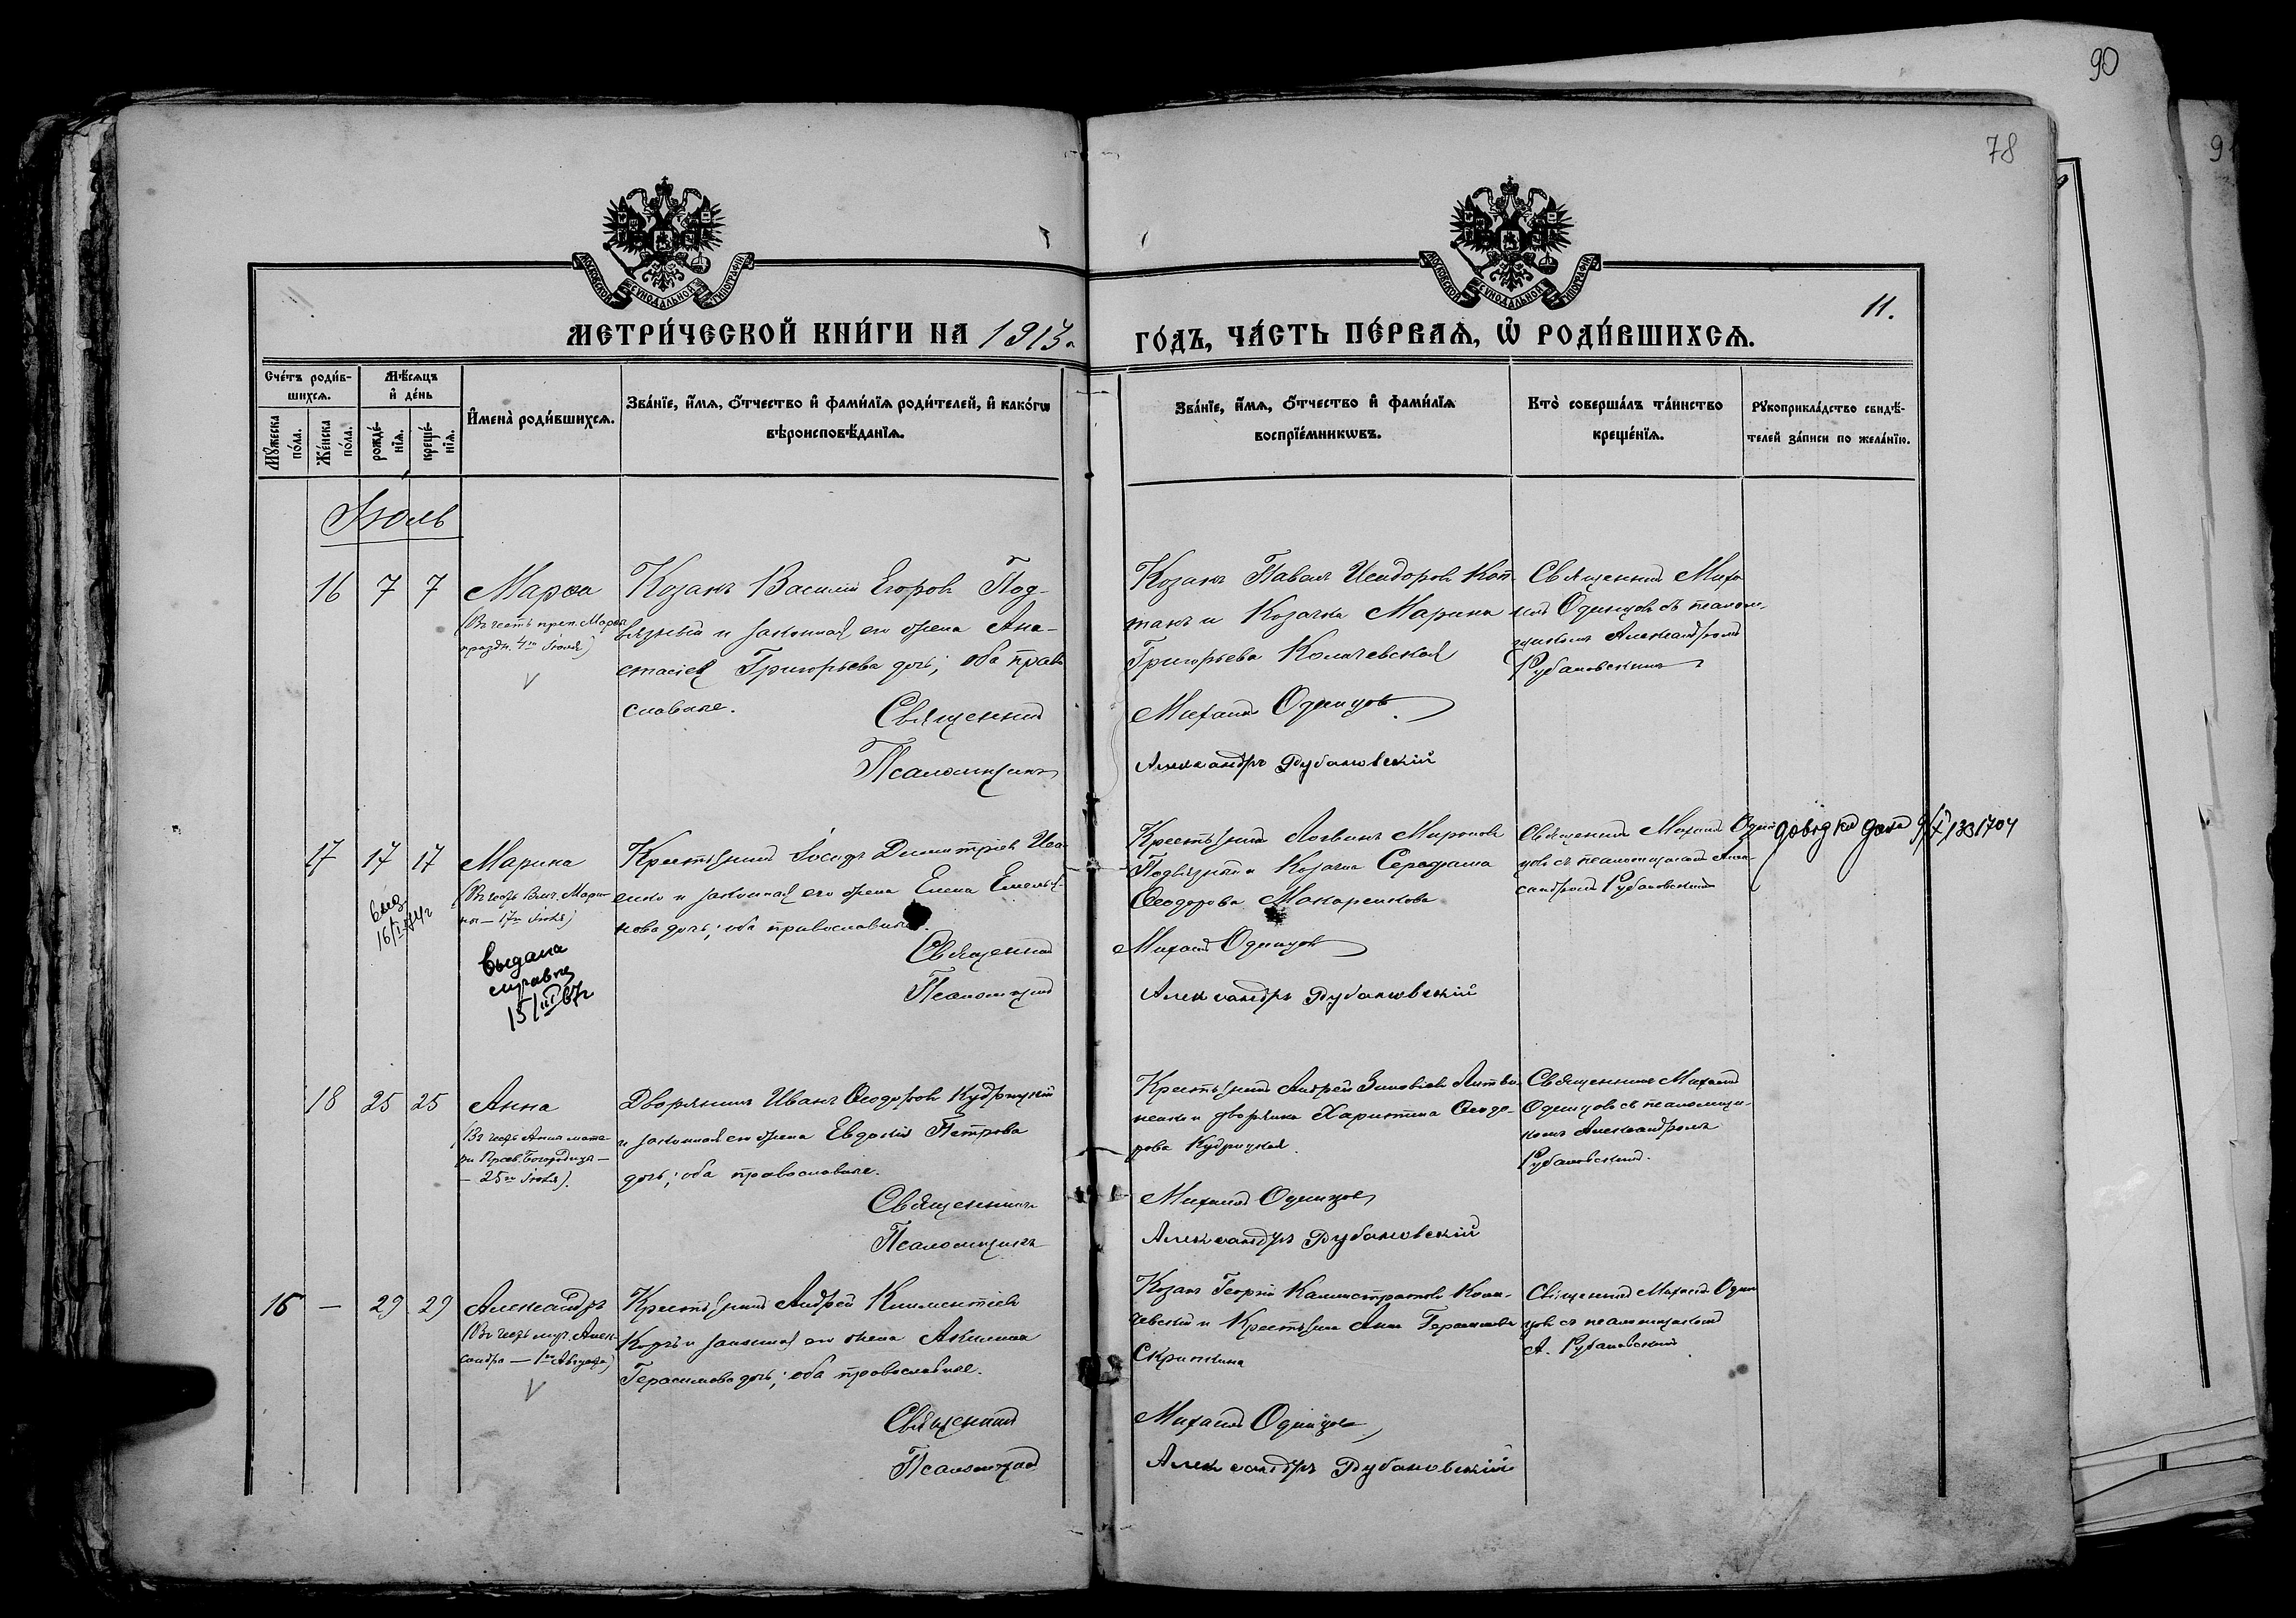 90
78
91
МОСКОВСКОЙ СѴНОДАЛЬНОЙ ТИПОГРАФІИ
МОСКОВСКОЙ СѴНОДАЛЬНОЙ ТИПОГРАФІИ
11.
МЕТРИ́ЧЕСКОЙ КНИ́ГИ НА 1913 г.
ГО́ДЪ, ЧА́СТЬ ПЕ́РВАѦ, Ѡ РОДИ́ВШИХСѦ.
Сче́тъ роди́в-
шихсѧ.
Мꙋжеска
по́ла.
Же́нска
по́ла.
Мѣ́сѧцъ
и҆ де́нь
рожде́-
нїѧ.
креще́-
нїѧ.
И҆мена̀ роди́вшихсѧ.
Зва́нїе, и҆́мѧ, ѻ҆́тчество и҆ фами́лїѧ роди́телей, и҆ како́гѡ
вѣроисповѣ́данїѧ.
Зва́нїе, и҆́мѧ, ѻ҆́тчество и҆ фами́лїѧ
воспрїе́мникѡвъ.
Кто̀ соверша́лъ та́инство
креще́нїѧ.
Рꙋкоприкла́дство свидѣ́-
телей за́писи по жела́нїю.
Іюль
16 7 7
Марѳа
(Въ честь преп. Марѳы
праздн. 4го Іюля)
Козакъ Василій Егоровъ Под-
вязный и законная его жена Ана-
стасія Григорьева дочь; оба право
славные.
Священникъ
Псаломщикъ
Козакъ Павелъ Исидоровъ Коп-
танъ и Козачка Марина
Григорьева Колачевская
Михаилъ Одинцовъ
Александръ Рубановскій
Священникъ Миха
илъ Одинцовъ съ псалом-
щикомъ Александромъ
Рубановскимъ
17 17 17
выд.
Марина
(Въ честь Влмч. Мари-
ны — 17го Іюля)
Выдана
справка
15/III 67г
Крестьянинъ Іосифъ Димитріевъ Иса
енко и законная его жена Елена Емелья-
нова дочь; оба православные.
Священникъ
Псаломщикъ
Крестьянинъ Логвинъ Мироновъ
Подвязный и Козачка
Ѳеодорова Макаренкова
Михаилъ Одинцовъ
Александръ Рубановскій
Священникъ Михаилъ Один
цовъ съ псаломщикомъ Алек-
сандромъ Рубановскимъ
1331704
18 25 25
Анна
(Въ честь Анны мате-
ри Пресв. Богородицы —
— 25го Іюля).
Дворянинъ Иванъ Ѳеодоровъ Кудрицкій
и законная его жена Евдокія Петрова
дочь; оба православные.
Священникъ
Псаломщикъ
Крестьянинъ Андрей Зиновіевъ Литви
ненко и дворянка Харитина Ѳеодо-
рова Кудрицкая.
Михаилъ Одинцовъ
Александръ Рубановскій
Священникъ Михаилъ
Одинцовъ съ псаломщи-
комъ Александромъ
Рубановскимъ.
16 — 29 29
Александръ
(Въ честь муч. Алек-
сандра — 1го Августа)
Крестьянинъ Андрей Климентіевъ
и законная его жена Акилина
Герасимова дочь; оба православные.
Священникъ
Псаломщикъ
Козакъ Георгій Каллистратовъ Кола-
чевскій и Крестьянка Анна Герасимова
Скрипкина
Михаилъ Одинцовъ
Александръ Рубановскій
Священникъ Михаилъ Один
цовъ съ псаломщикомъ
А. Рубановскимъ